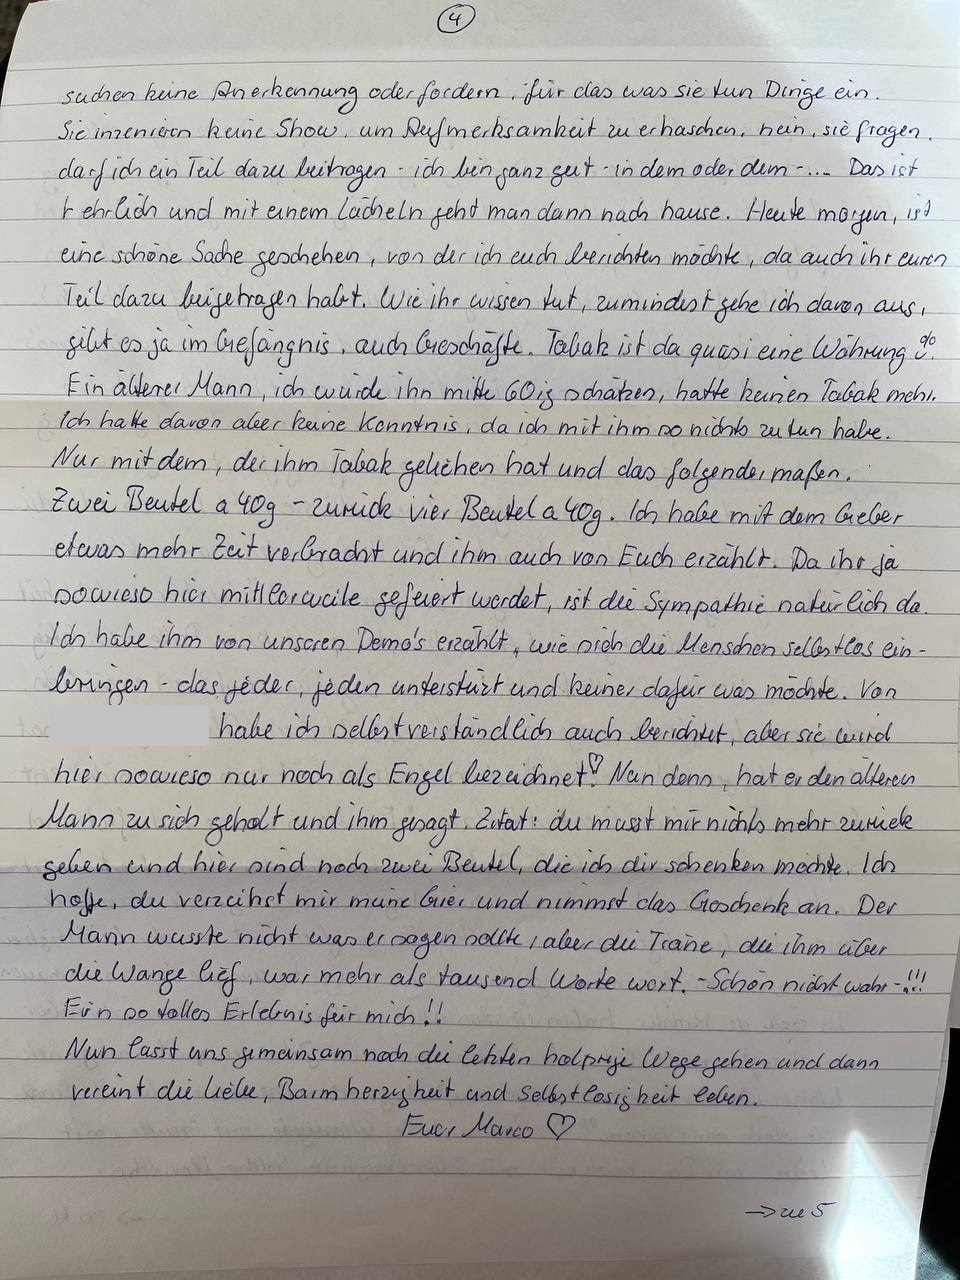 4
suchen keine Anerkennung oder fordern, für das was sie tun Dinge ein.
Sie inzenieren keine Show, um Aufmerksamkeit zu erhaschen, nein, sie fragen,
darf ich ein Teil dazu beitragen - ich bin ganz gut - in dem oder dem -... Das ist
ehrlich und mit einem Lächeln geht man dann nach hause. Heute morgen, ist
eine schöne Sache geschehen, von der ich euch berichten möchte, da auch ihr euren
Teil dazu beigetragen habt. Wie ihr wissen tut, zumindest gehe ich davon aus,
gibt es ja im Gefängnis, auch Geschäfte. Tabak ist da quasi eine Währung
Ein älterer Mann, ich würde ihn mitte 60ig schätzen, hatte keinen Tabak mehr.
Ich hatte davon aber keine Kenntnis, da ich mit ihm so nichts zu tun habe.
Nur mit dem, der ihm Tabak geliehen hat und das folgendermaßen.
Zwei Beutel a 40g - zurück vier Beutel a 40g. Ich habe mit dem Geber
etwas mehr Zeit verbracht und ihm auch von Euch erzählt. Da ihr ja
sowieso hier mittlerweile gefeiert werdet, ist die Sympathie natürlich da.
Ich habe ihm von unseren Demo's erzählt, wie sich die Menschen selbstlos ein-
bringen - das jeder, jeden unterstüzt und keiner dafür was möchte. Von
habe ich selbstverständlich auch berichtet, aber sie wird
hier sowieso nur noch als Engel bezeichnet! Nun denn, hat er den älteren
Mann zu sich geholt und ihm gesagt. Zitat: du musst mir nichts mehr zurück
geben und hier sind noch zwei Beutel, die ich dir schenken möchte. Ich
hoffe, du verzeihst mir meine Gier und nimmst das Geschenk an. Der
Mann wusste nicht was er sagen sollte, aber die Träne, die ihm über
die Wange lief, war mehr als tausend Worte wert. - Schön nicht wahr -!!!
Ein so tolles Erlebnis für mich!!
Nun lasst uns gemeinsam noch die letzten holprige Wege gehen und dann
vereint die Liebe, Barmherzigkeit und Selbstlosigkeit leben.
Euer Marco ♡
→ zu 5